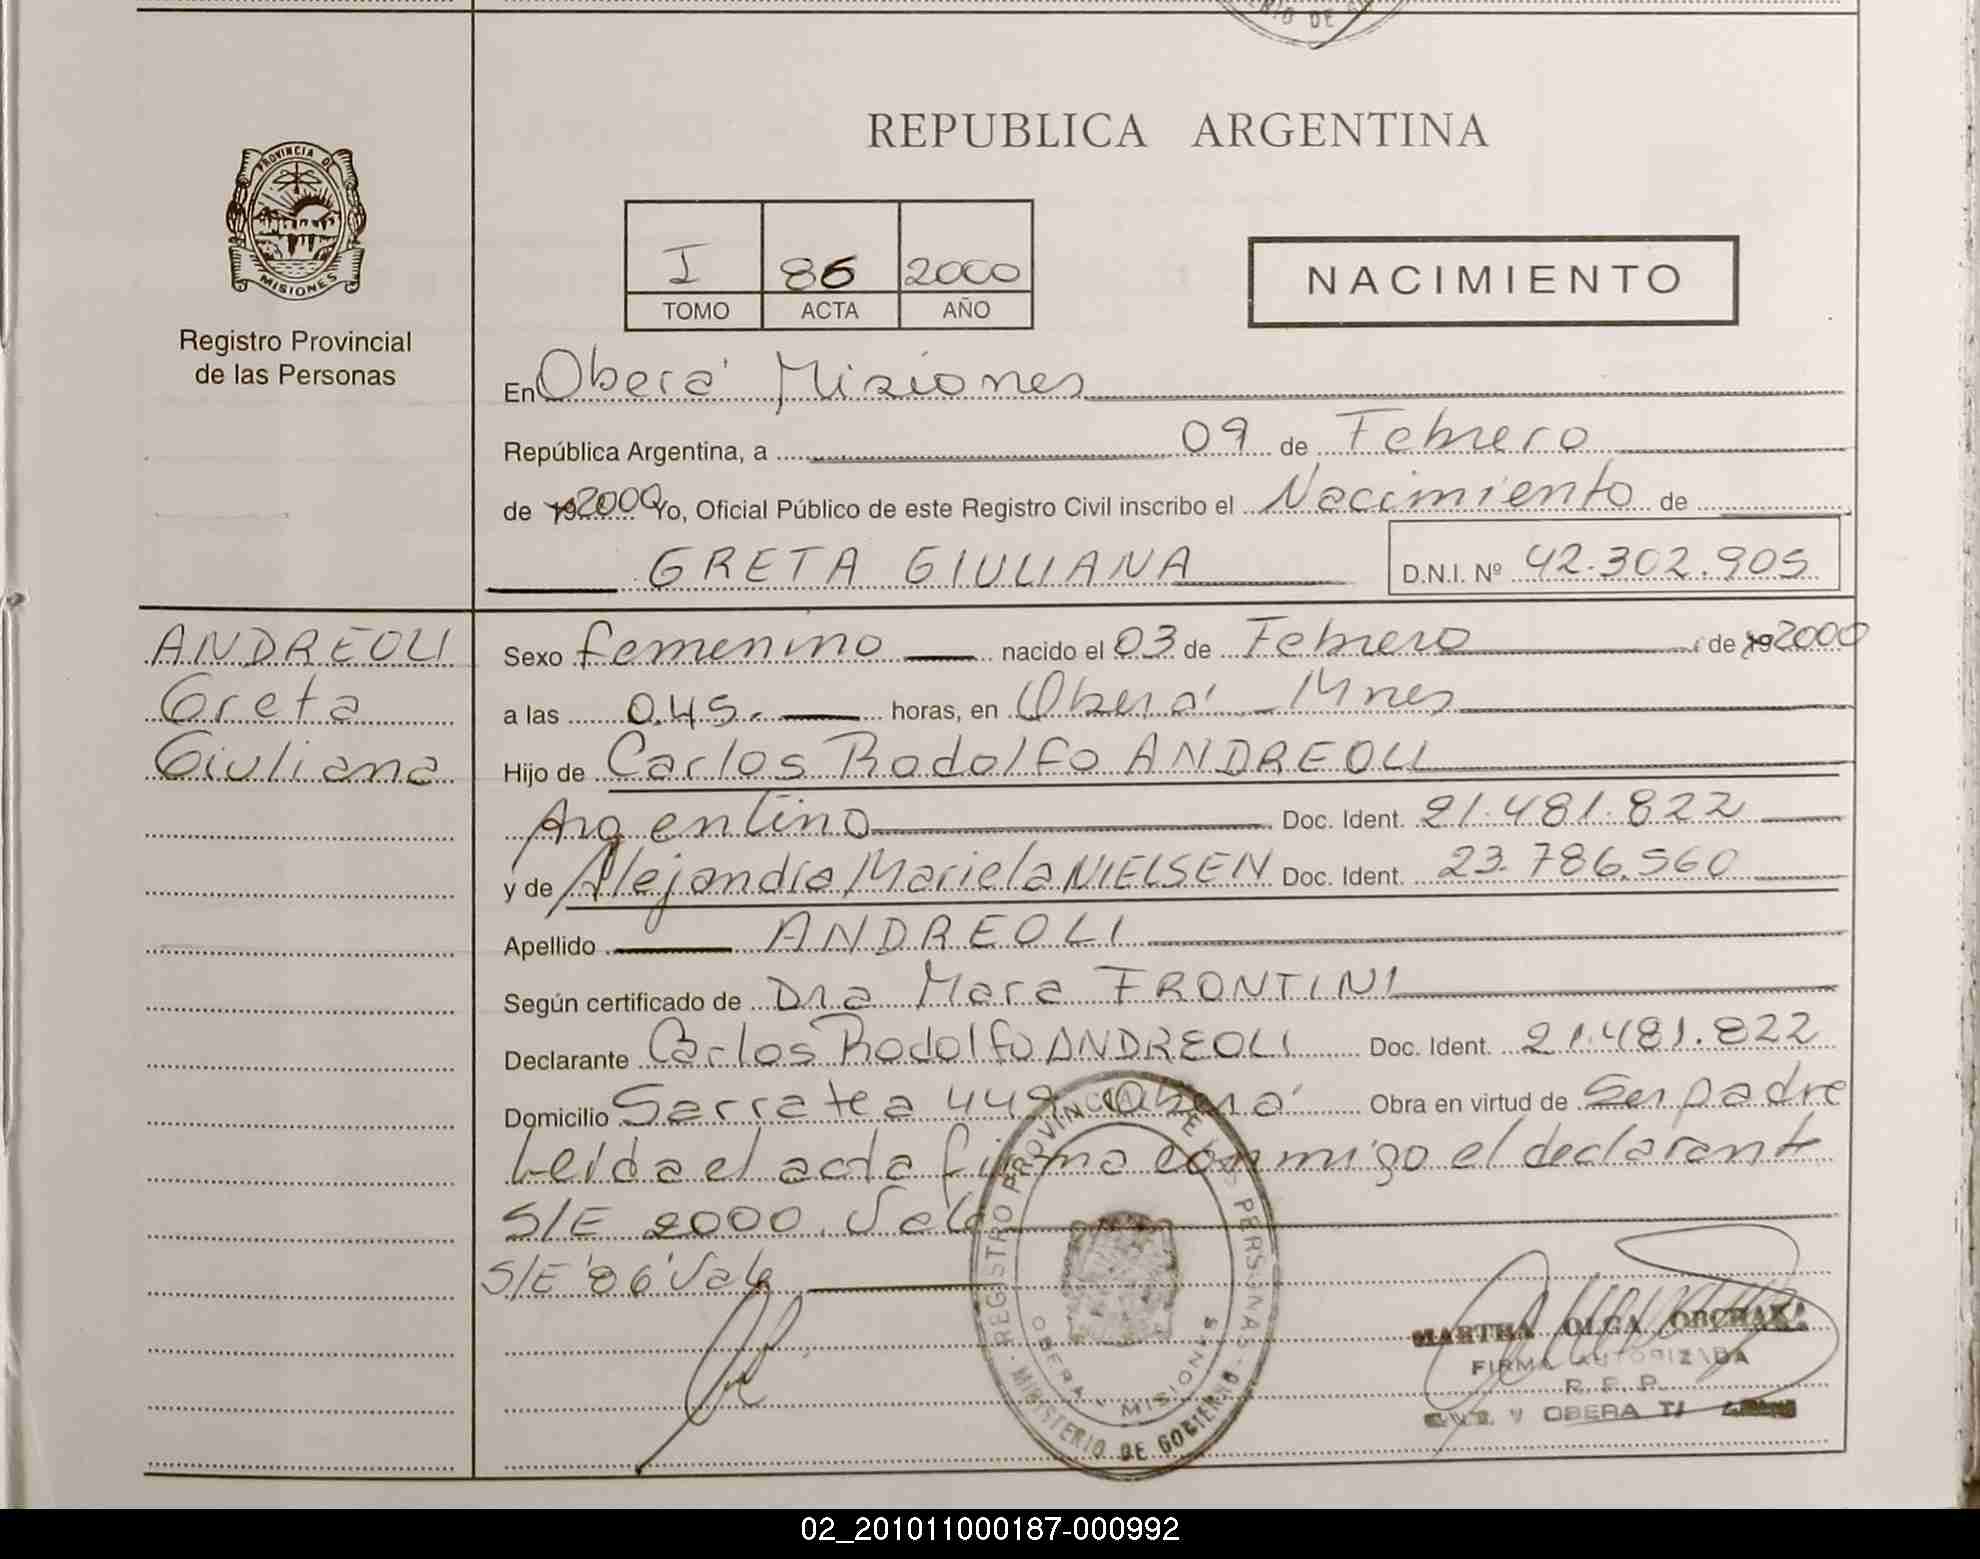 REPUBLICA ARGENTINA
PROVINCIA DE
MISIONES
Registro Provincial
de las Personas
I 86 2000
TOMO ACTA AÑO
NACIMIENTO
En Oberá Misiones
República Argentina, a 09 de Febrero
de 19 2000 Yo, Oficial Público de este Registro Civil inscribo el Nacimiento de
GRETA GIULIANA D.N.I. Nº 42.302.905
ANDREOLI
Greta
Giuliana
Sexo femenino nacido el 03 de Febrero de 19 2000
a las 0.45. horas, en Oberá Mnes
Hijo de Carlos Rodolfo ANDREOLI
Argentino Doc. Ident. 21.481.822
y de Alejandra Mariela NIELSEN Doc. Ident. 23.786.560
Apellido ANDREOLI
Según certificado de Dra Mara FRONTINI
Declarante Carlos Rodolfo ANDREOLI Doc. Ident. 21.481.822
Domicilio Sarratea 449 Oberá Obra en virtud de Ser padre
Leida el acta firma conmigo el declarant
S/E 2000. Vale
S/E '86' Vale
REGISTRO PROVINCIAL DE LAS PERSONAS
OBERA MISIONES
MINISTERIO DE GOBIERNO
MARTHA OLGA
FIRMA AUTORIZADA
R. P. P.
OBERA
02_201011000187-000992